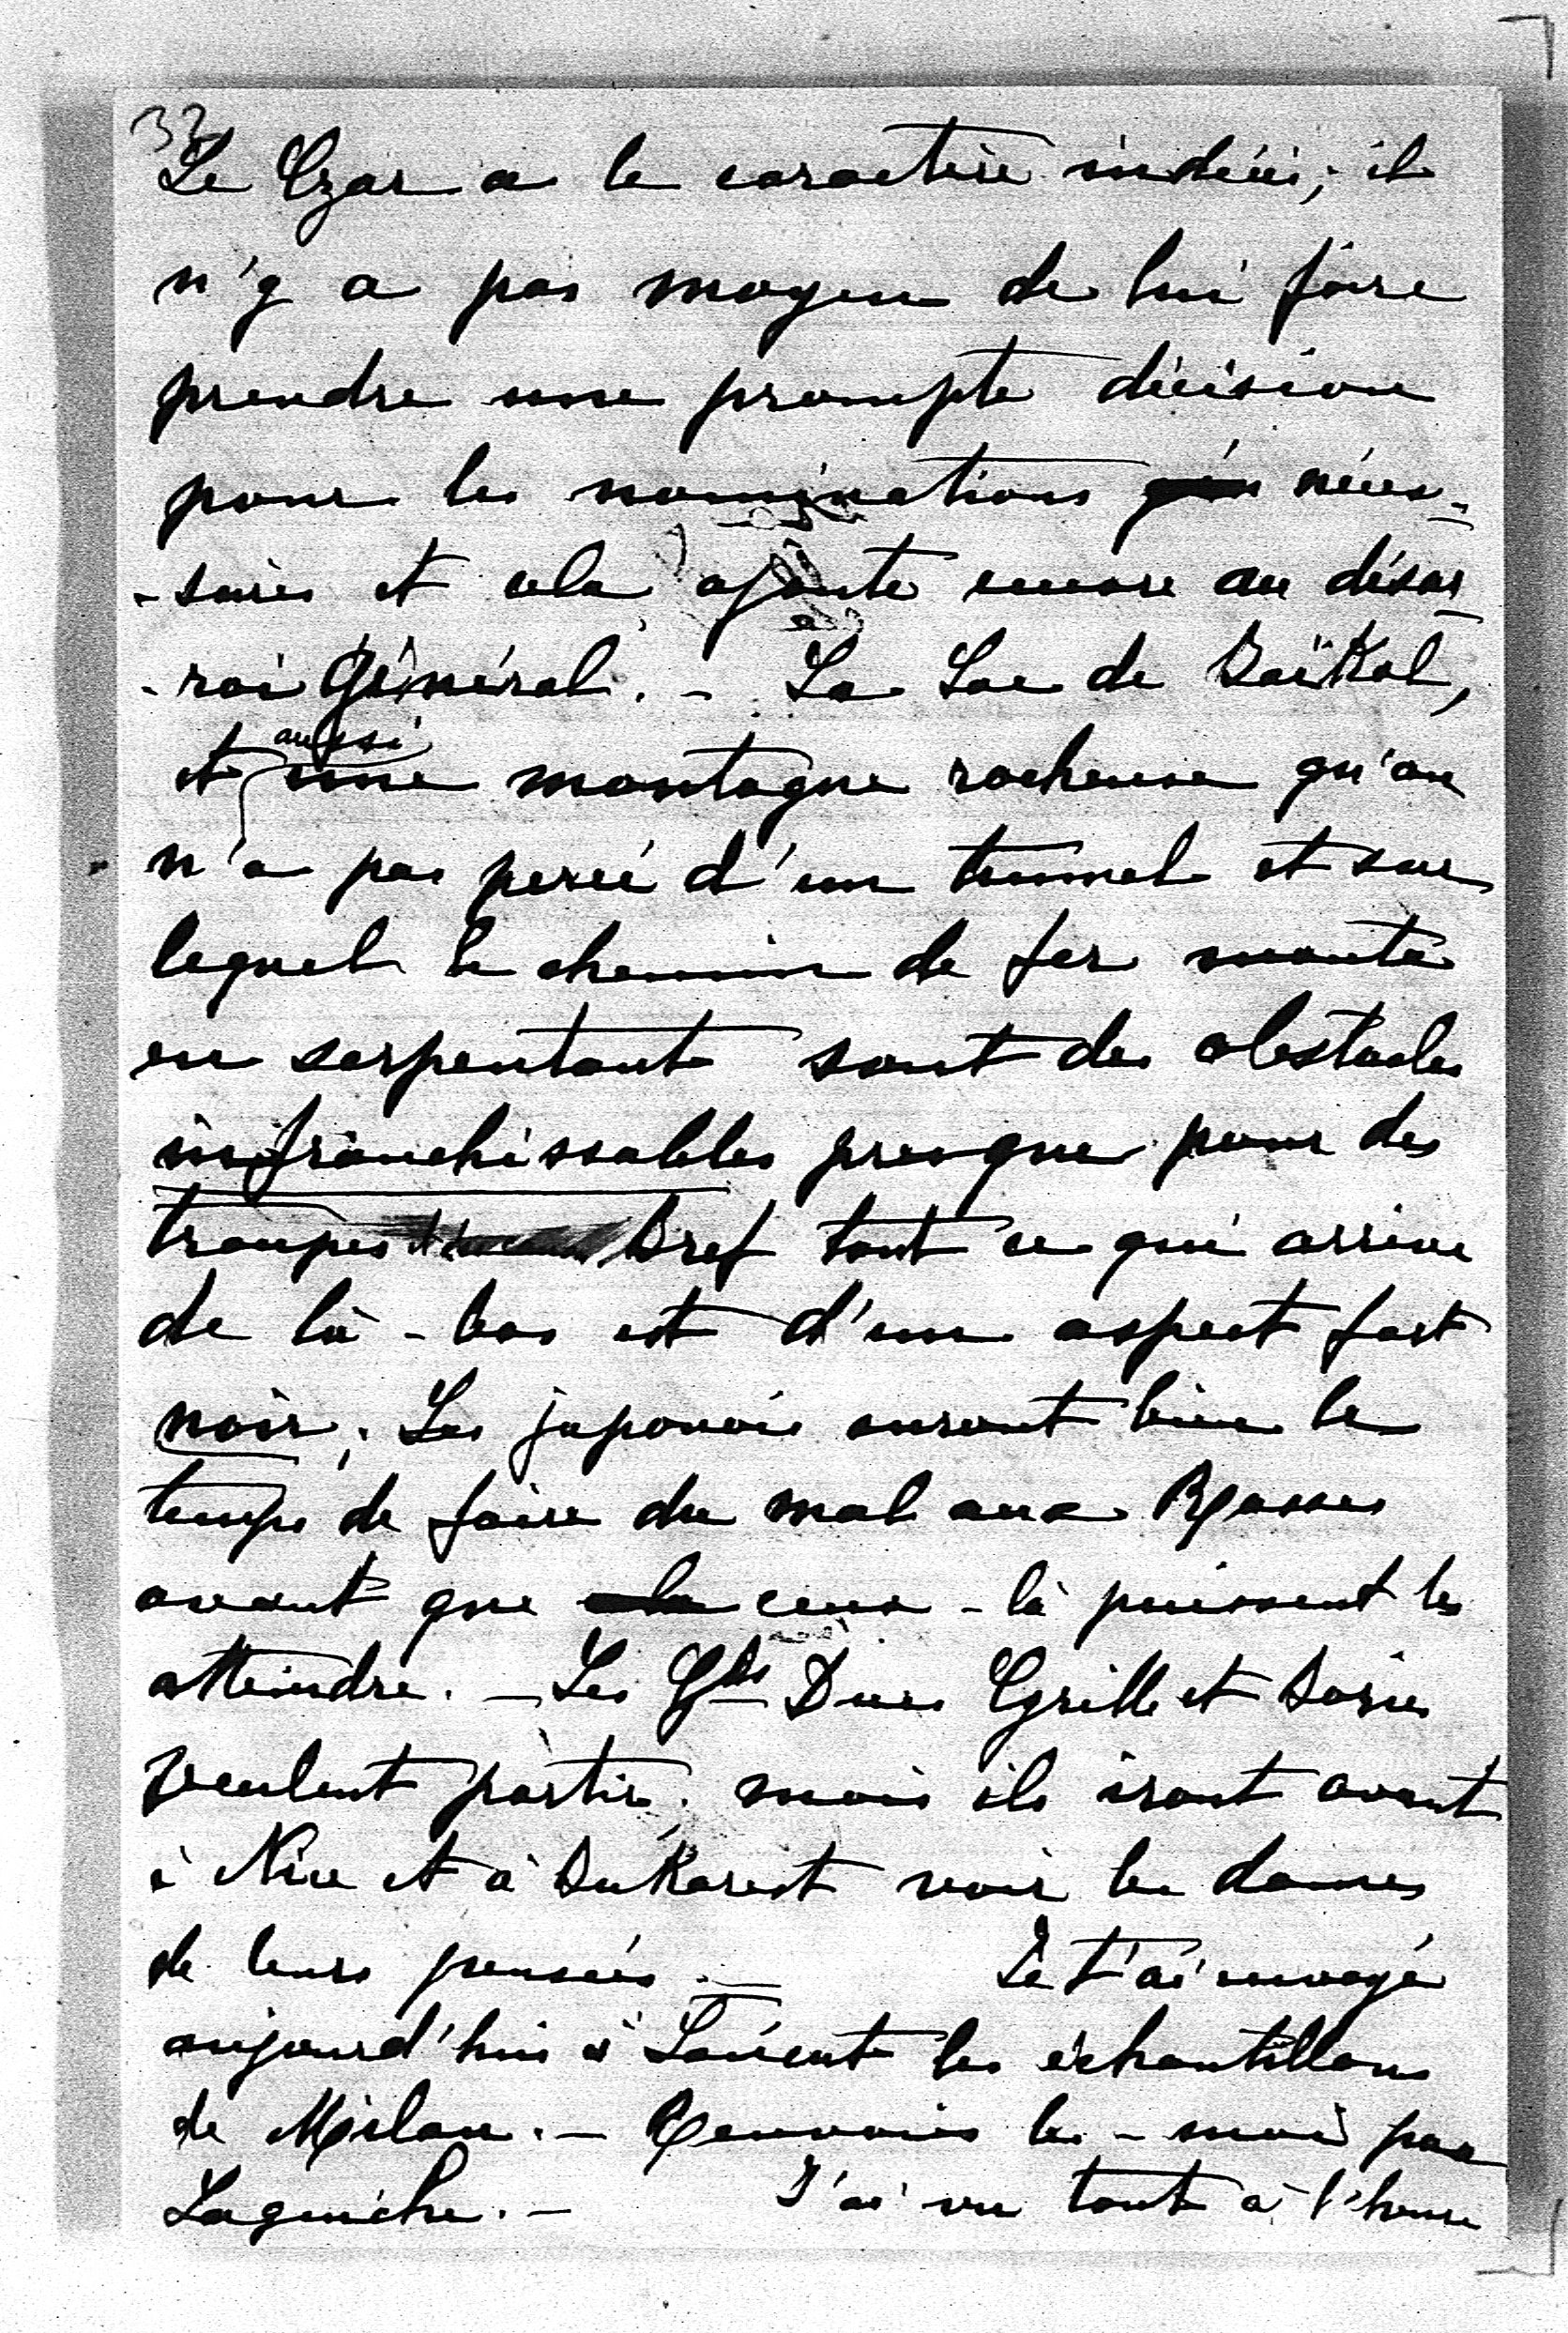 33
Le Czar a le caractère indécis; il
n'y a pas moyen de lui faire
prendre une prompte décision
pour les nominations néces-
-saires et cela ajoute encore au désar-
-roi général. - Le Lac de Baïkal,
et aussi une montagne rocheuse qu'on
n'a pas percé d'un tunnel et sur
lequel le chemin de fer monte
en serpentant sont des obstacles
infranchissables presque pour des
troupes Bref tout ce qui arrive
de là-bas est d'un aspect fort
noir. Les japonais auront bien le
temps de faire du mal aux Russes
avant que ceux-là puissent les
atteindre. - Les Gds Ducs Cyrille et Boris
veulent partir, mais ils iront avant
à Nice et à Bukarest voir les dames
de leurs pensées. - Je t'ai envoyé
aujourd'hui à les échantillons
de Milan. - Renvoies les-moi par
Laguiche. - J'ai vu tout à l'heure